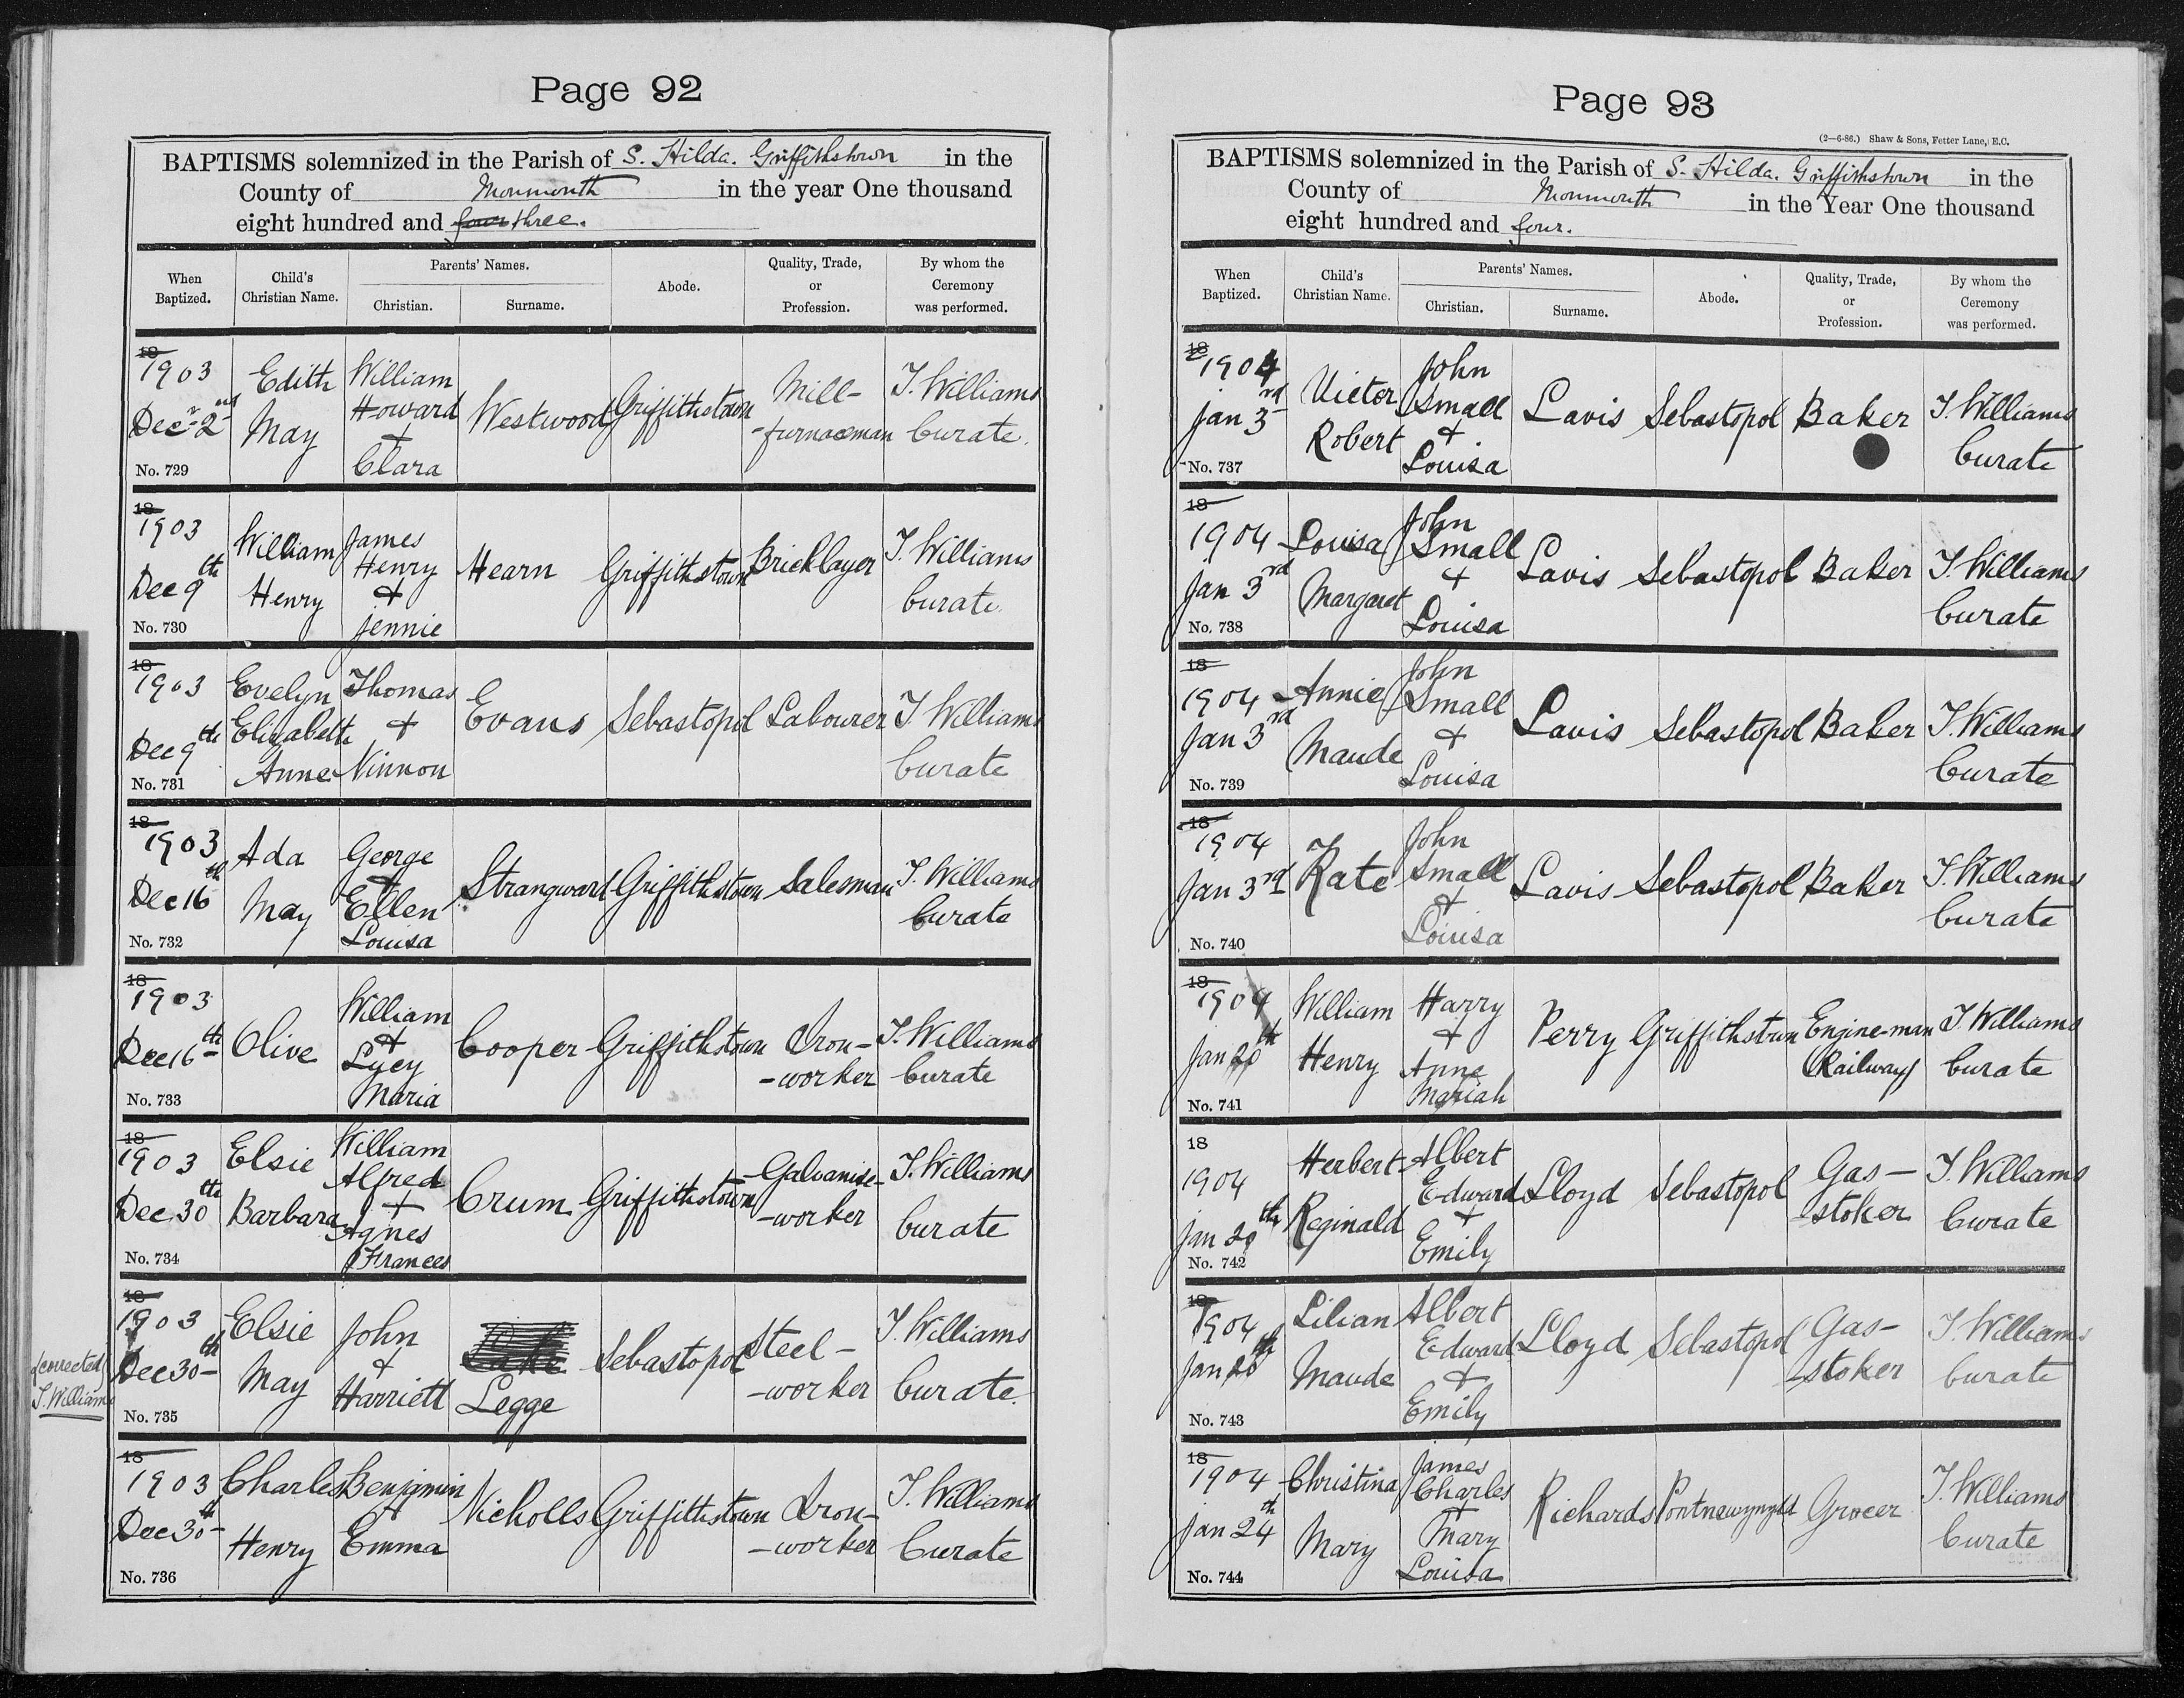 Page 92
BAPTISMS solemnized in the Parish of S. Hilda. Griffithstown in the
County of Monmouth in the year One thousand
eight hundred and four three.
When Baptized.
Child's Christian Name.
Parents' Names.
Christian.
Surname.
Abode.
Quality, Trade, or Profession.
By whom the Ceremony was performed.
18
1903
Decr 2nd
No. 729
Edith
May
William
Howard
+
Clara
Westwood
Griffithstown
Mill-
-furnaceman
T. Williams
Curate.
18
1903
Dec 9th
No. 730
William
Henry
James
Henry
+
Jennie
Hearn
Griffithstown
Bricklayer
T. Williams
Curate.
18
1903
Dec 9th
No. 731
Evelyn
Elizabeth
Anne
Thomas
+
Ninnon
Evans
Sebastopol
Labourer
T. Williams
Curate
18
1903
Dec 16th
No. 732
Ada
May
George
+
Ellen
Louisa
Strangward
Griffithstown
Salesman
T. Williams
Curate
18
1903
Dec 16th
No. 733
Olive
William
+
Lucy
Maria
Cooper
Griffithstown
Iron-
-worker
T. Williams
Curate
18
1903
Dec. 30th
No. 734
Elsie
Barbara
William
Alfred
+
Agnes
Frances
Crum
Griffithstown
Galvanise-
-worker
T. Williams
Curate
corrected
T. Williams
18
1903
Dec 30th
No. 735
Elsie
May
John
+
Harriett
Legge
Sebastopol
Steel-
-worker
T. Williams
Curate.
18
1903
Dec 30th
No. 736
Charles
Henry
Benjamin
+
Emma
Nicholls
Griffithstown
Iron-
-worker
T. Williams
Curate
Page 93
(2—6-86.) Shaw & Sons, Fetter Lane, E.C.
BAPTISMS solemnized in the Parish of S. Hilda. Griffithstown in the
County of Monmouth in the Year One thousand
eight hundred and four.
When Baptized.
Child's Christian Name.
Parents' Names.
Christian.
Surname.
Abode.
Quality, Trade, or Profession.
By whom the Ceremony was performed.
18
1904
Jan 3rd
No. 737
Victor
Robert
John
Small
+
Louisa
Lavis
Sebastopol
Baker
T. Williams
Curate
18
1904
Jan 3rd
No. 738
Louisa
Margaret
John
Small
+
Louisa
Lavis
Sebastopol
Baker
T. Williams
Curate
18
1904
Jan 3rd
No. 739
Annie
Maude
John
Small
+
Louisa
Lavis
Sebastopol
Baker
T. Williams
Curate
18
1904
Jan 3rd
No. 740
Kate
John
Small
+
Louisa
Lavis
Sebastopol
Baker
T. Williams
Curate
18
1904
Jan 20th
No. 741
William
Henry
Harry
+
Anne
Mariah
Perry
Griffithstown
Engine-man
(Railway)
T. Williams
Curate
18
1904
Jan 20th
No. 742
Herbert
Reginald
Albert
Edward
+
Emily
Lloyd
Sebastopol
Gas-
-stoker
T. Williams
Curate
18
1904
Jan 20th
No. 743
Lilian
Maude
Albert
Edward
+
Emily
Lloyd
Sebastopol
Gas-
-stoker
T. Williams
Curate
18
1904
Jan 24th
No. 744
Christina
Mary
James
Charles
+
Mary
Louisa
Richards
Grocer
T. Williams
Curate